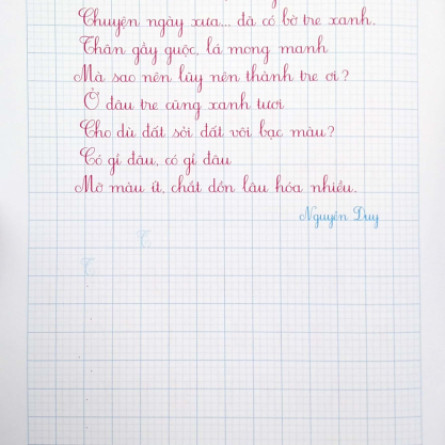 Chuyện ngày xưa... đã có bờ tre xanh.
Thân gầy guộc, lá mong manh
Mà sao nên lũy nên thành tre ơi?
Ở đâu tre cũng xanh tươi
Cho dù đất sỏi đất vôi bạc màu?
Có gì đâu, có gì đâu
Mỡ màu ít, chắt dồn lâu hóa nhiều.
Nguyễn Duy
T
T